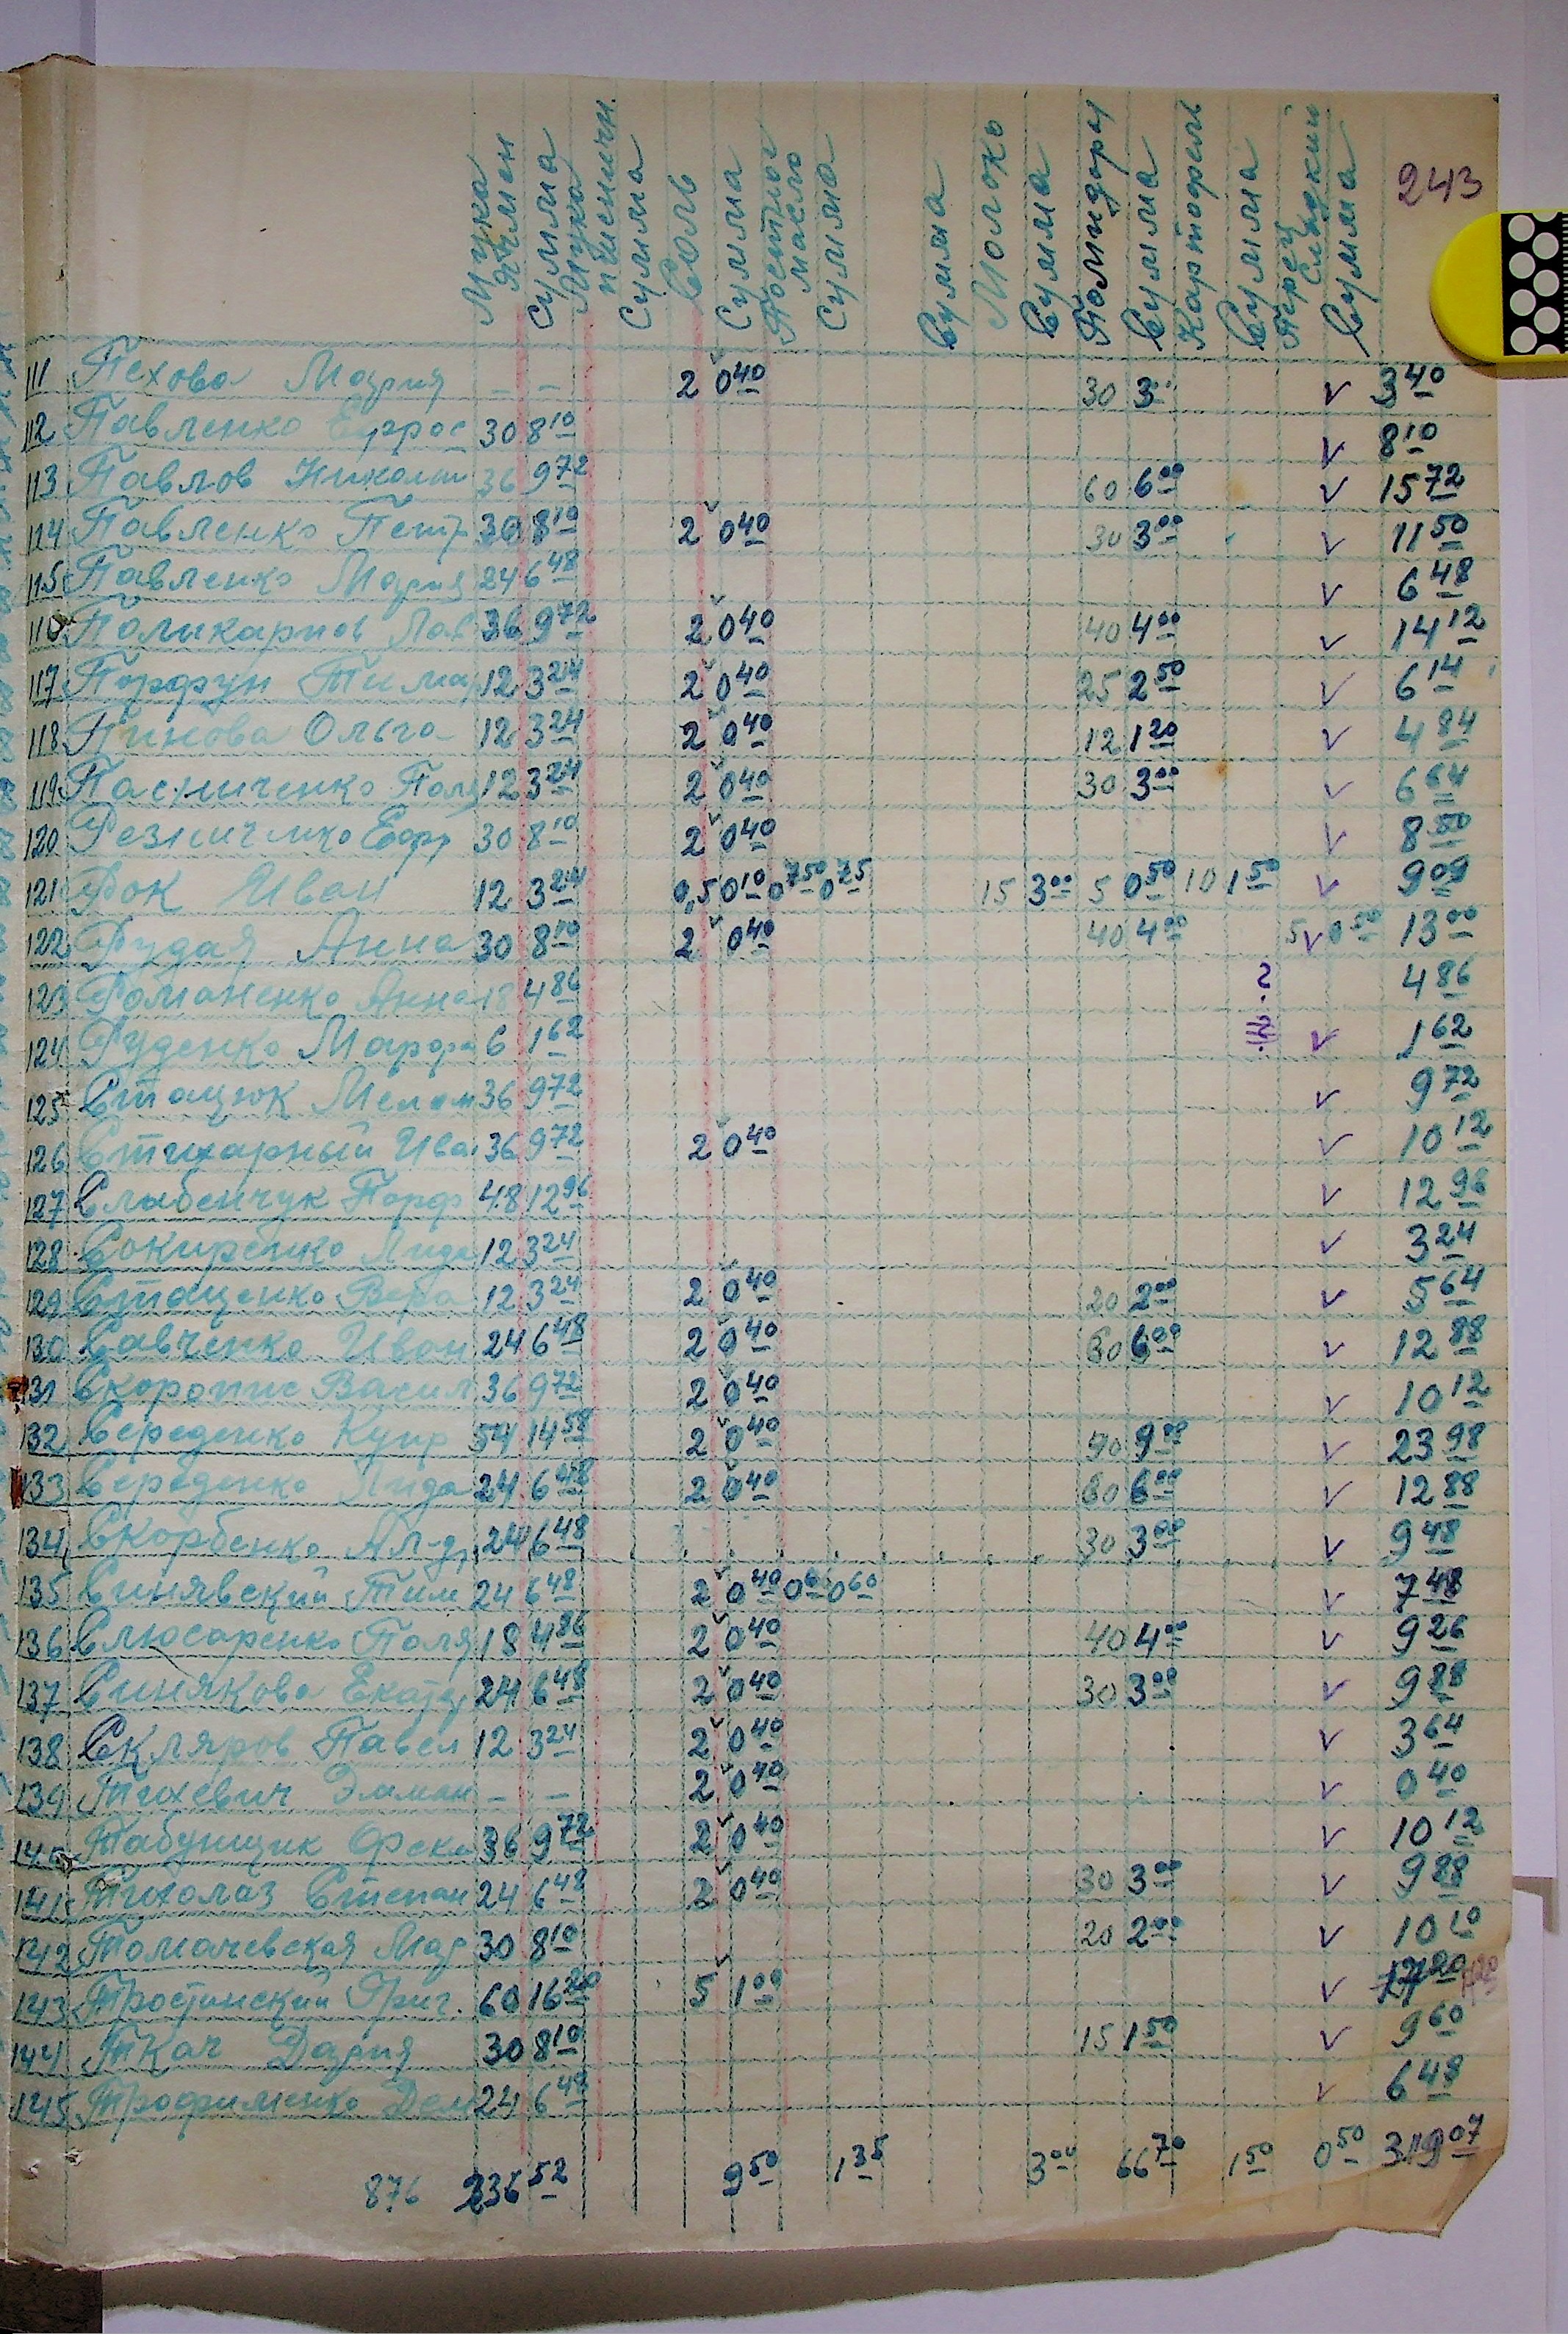 Мука ячмен Сумма Мука пшеничн. Сумма Соль Сумма Постное масло Сумма Сумма Молоко Сумма Помидоры Сумма Картофель Сумма Перец сладкий Сумма 243
111 Пехова Мария – – 2 0 40 30 3 ✓ 3 40
112 Павленко 30 8 10 ✓ 8 10
113 Павлов Николай 36 9 72 60 6 00 ✓ 15 72
114 Павленко Петр 30 8 10 2 0 40 30 3 00 ✓ 11 50
115 Павленко Мария 24 6 48 ✓ 6 48
116 Поликарпов 36 9 72 2 0 40 40 4 00 ✓ 14 12
117 Порфун Тима 12 3 24 2 0 40 25 2 50 ✓ 6 14
118 Пинова Ольга 12 3 24 2 0 40 12 1 20 ✓ 4 84
119 Пасниченко Поля 12 3 24 2 0 40 30 3 00 ✓ 6 64
120 Резниченко Ефр 30 8 10 2 0 40 ✓ 8 50
121 Рок Иван 12 3 24 0,5 0 10 0 750 0 75 15 3 00 5 0 50 10 1 50 ✓ 9 09
122 Рудая Анна 30 8 10 2 0 40 40 4 00 5 ✓ 0 50 13 00
123 Романенко Анна 18 4 86 ? 4 86
124 Руденко Марфа 6 1 62 ✓ 1 62
125 Стацюк Мелан 36 9 72 ✓ 9 72
126 Стихарный Ива 36 9 72 2 0 40 ✓ 10 12
127 Слабенчук Порф 48 12 96 ✓ 12 96
128 Сокиренко Лида 12 3 24 ✓ 3 24
129 Стаценко Вера 12 3 24 2 0 40 20 2 00 ✓ 5 64
130 Савченко Иван 24 6 48 2 0 40 60 6 00 ✓ 12 88
131 Скоропис Васил 36 9 72 2 0 40 ✓ 10 12
132 Середенко Купр 54 14 58 2 0 40 90 9 00 ✓ 23 98
133 Середенко Лида 24 6 48 2 0 40 60 6 00 ✓ 12 88
134 Скорбенко Ал-др 24 6 48 30 3 00 ✓ 9 48
135 Синявский Тим 24 6 48 2 0 40 0 6 0 60 ✓ 7 48
136 Слюсаренко Поля 18 4 86 2 0 40 40 4 00 ✓ 9 26
137 Синякова Екатер 24 6 48 2 0 40 30 3 00 ✓ 9 88
138 Скляров Павел 12 3 24 2 0 40 ✓ 3 64
139 Тихевич – – 2 0 40 ✓ 0 40
140 Табунщик Фекл 36 9 72 2 0 40 ✓ 10 12
141 Тихолаз Степан 24 6 48 2 0 40 30 3 00 ✓ 9 88
142 Томачевская Мар 30 8 10 20 2 00 ✓ 10 10
143 Тростинский Григ. 60 16 20 5 1 00 ✓ 17 20
144 Ткач Дария 30 8 10 15 1 50 ✓ 9 60
145 Трофименко Дем 24 6 48 ✓ 6 48
876 236 52 9 50 1 35 3 00 66 70 1 50 0 50 319 07